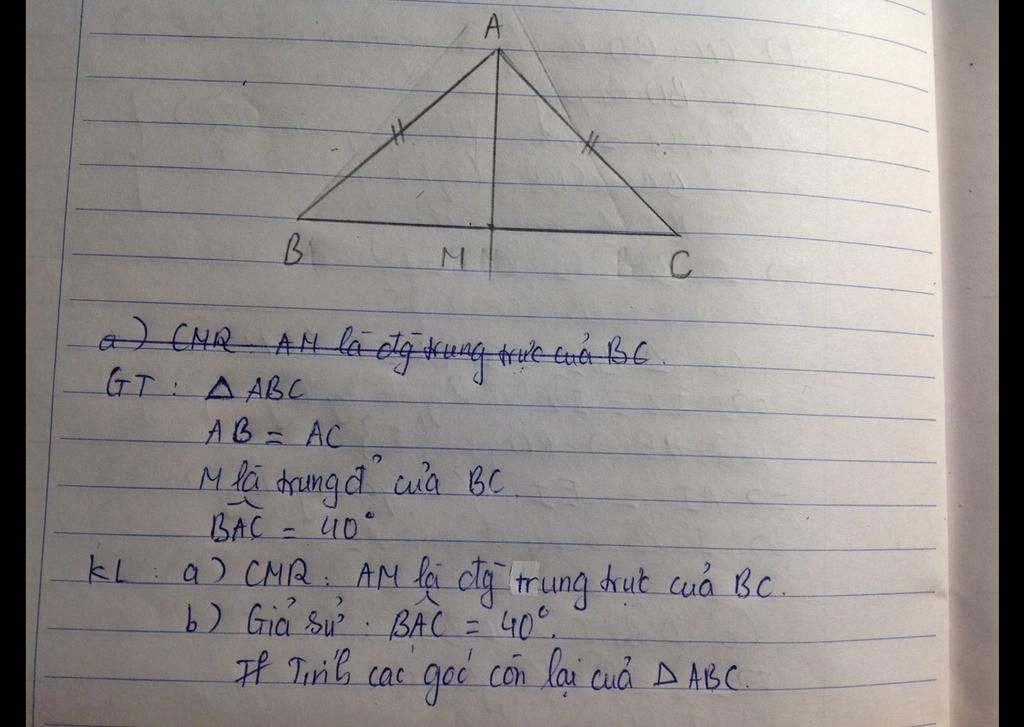 A
B M C
a) CMR. AM là đg trung trực cuả BC.
GT : Δ ABC
AB = AC
M là trung đ' của BC.
BAC = 40°
KL : a) CMR : AM là đg trung trực cuả BC.
b) Giả sử : BAC = 40°.
Tính các góc còn lại cuả Δ ABC.